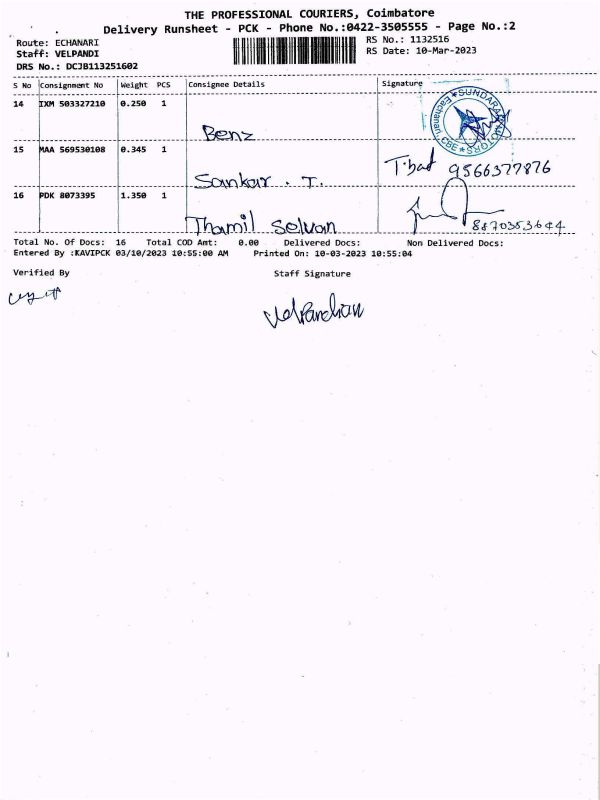 THE PROFESSIONAL COURIERS, Coimbatore
Delivery Runsheet - PCK - Phone No.:0422-3505555 - Page No.:2
Route: ECHANARI
RS No.: 1132516
Staff: VELPANDI
RS Date: 10-Mar-2023
DRS No.: DCJB113251602
S No Consignment No Weight PCS Consignee Details Signature
14 IXM 503327210 0.250 1
Benz
SUNDARAM MOTORS
Eachanari, CBE
15 MAA 569530108 0.345 1
Sankar . T. 9566377876
16 PDK 8073395 1.350 1
Thamil Selvan
Total No. Of Docs: 16 Total COD Amt: 0.00 Delivered Docs: Non Delivered Docs:
Entered By :KAVIPCK 03/10/2023 10:55:00 AM Printed On: 10-03-2023 10:55:04
Verified By Staff Signature